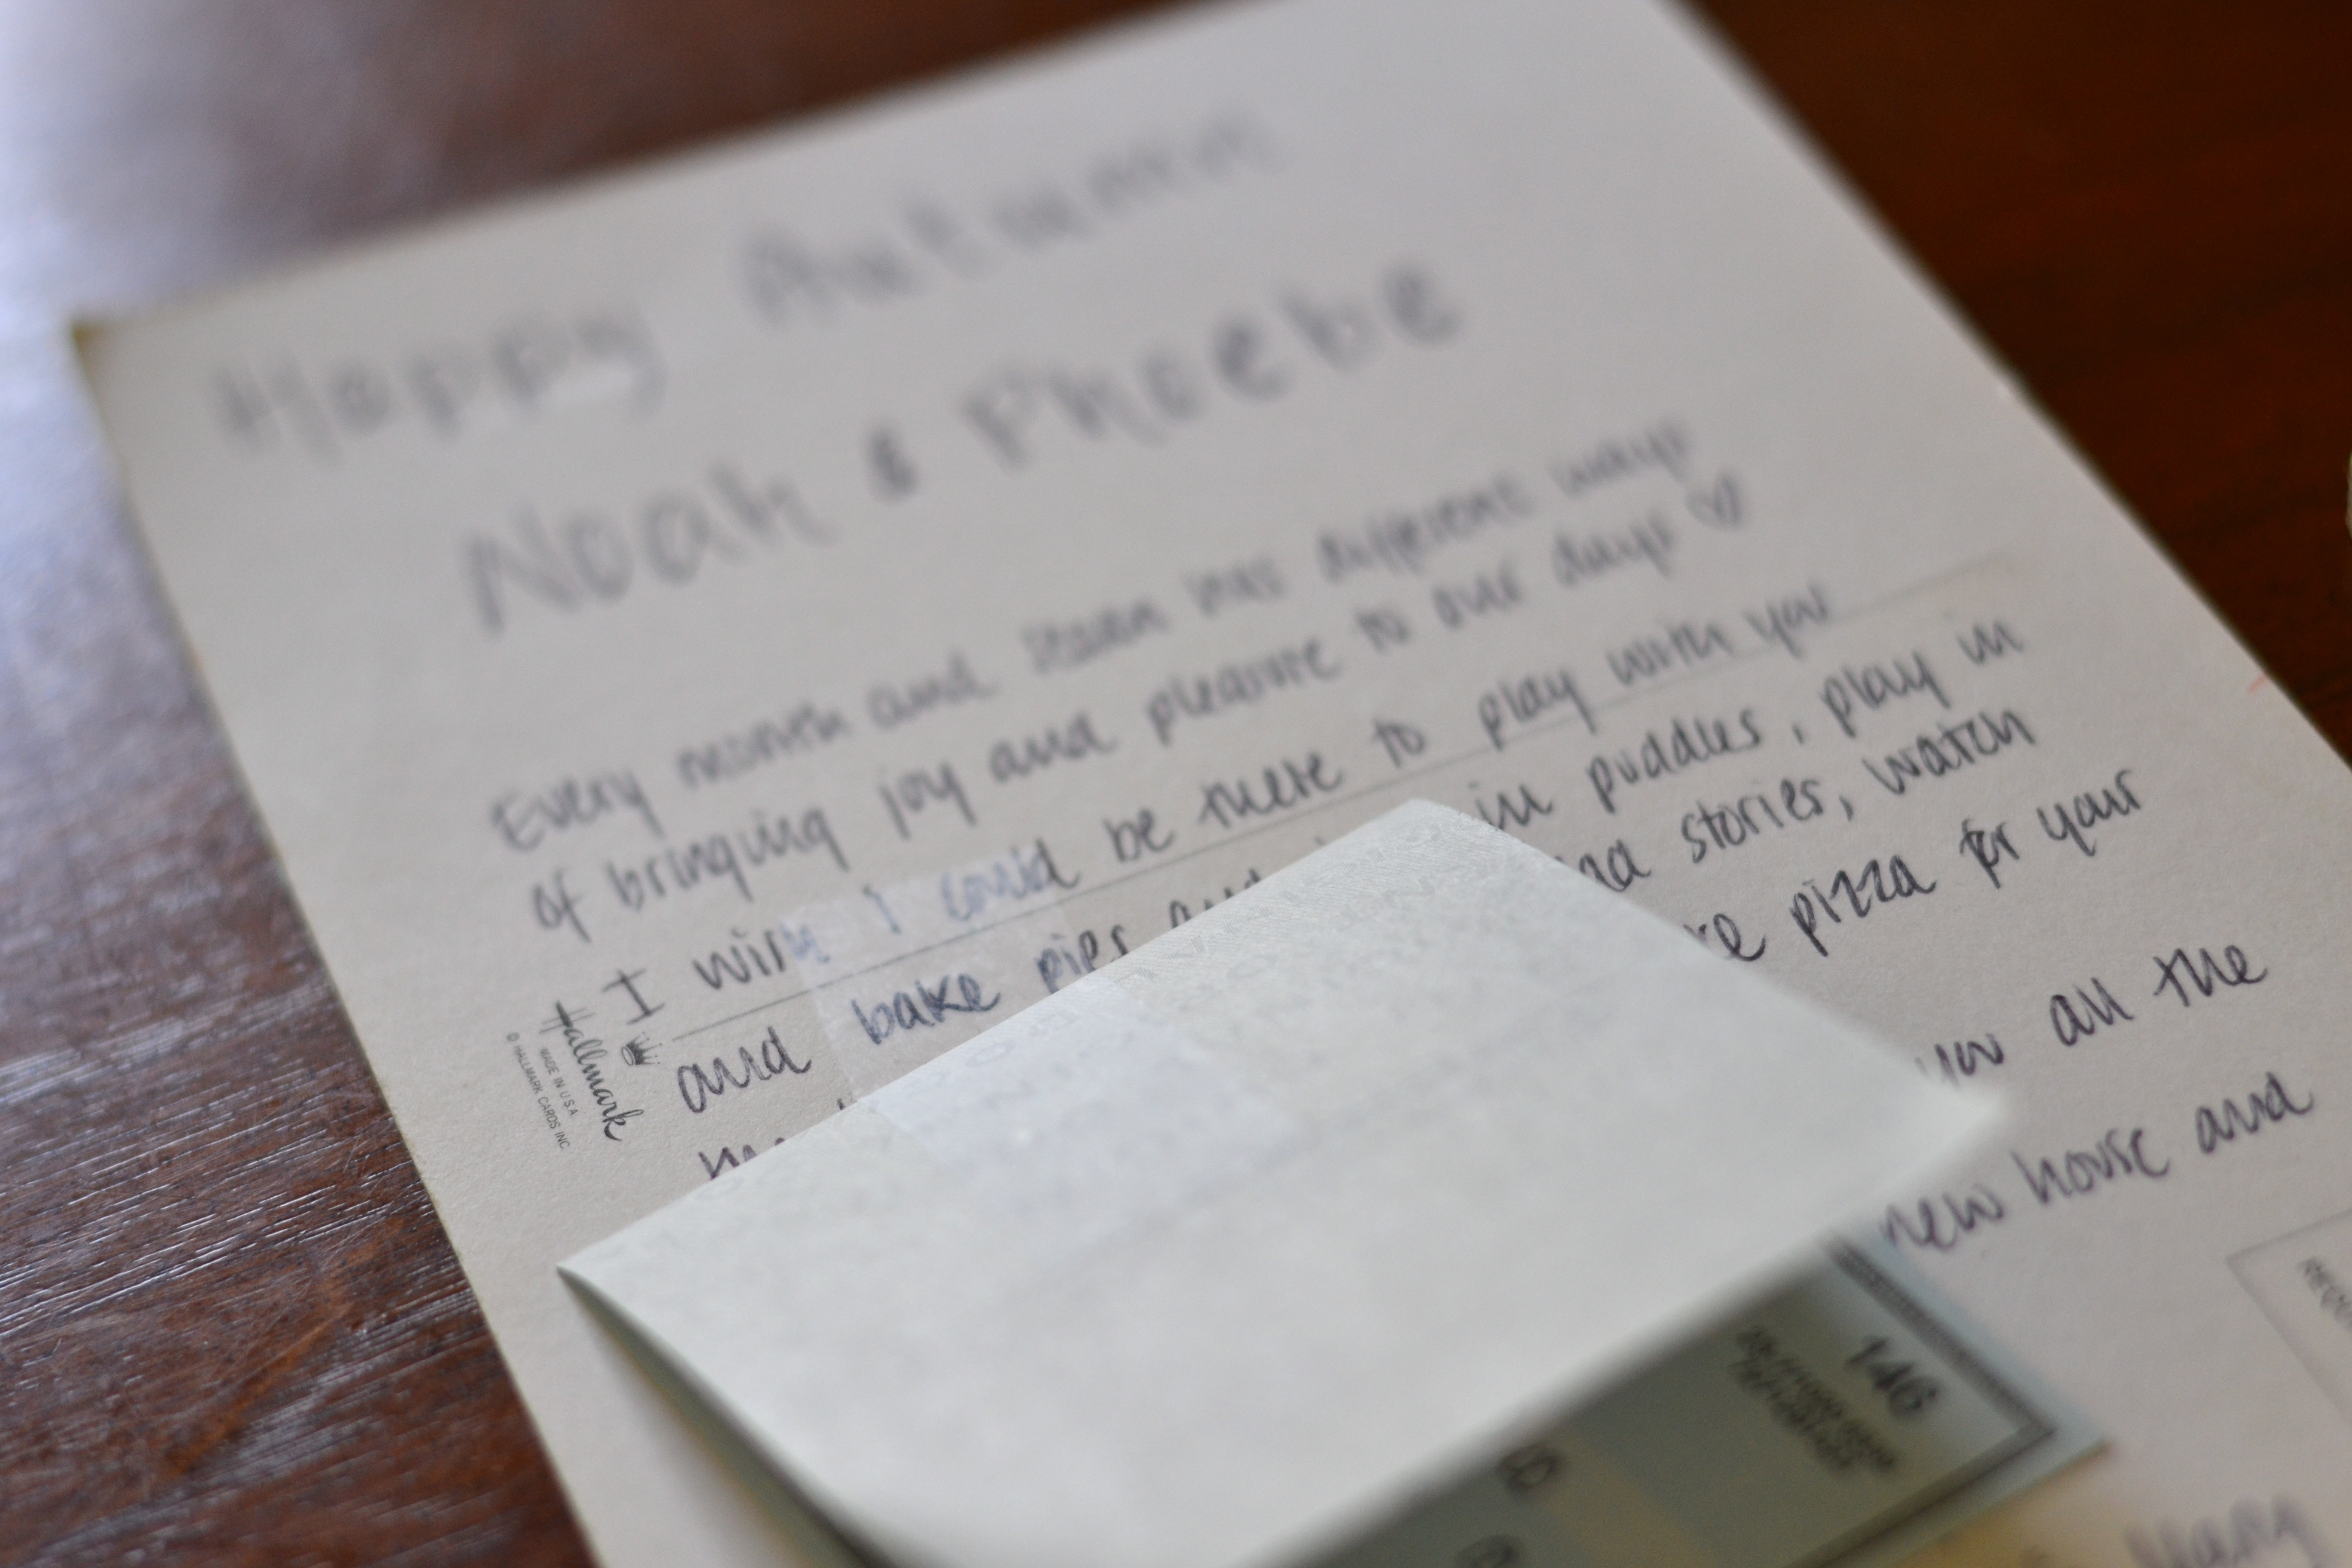 Happy Autumn
Noah & Phoebe
Every month and season has different ways
of bringing joy and pleasure to our days ♡
I wish I could be there to play with you
and bake pies and in puddles, play in
stories, watch
pizza for your
you all the
new house and
Hallmark
MADE IN U.S.A.
© HALLMARK CARDS INC
146
Mary